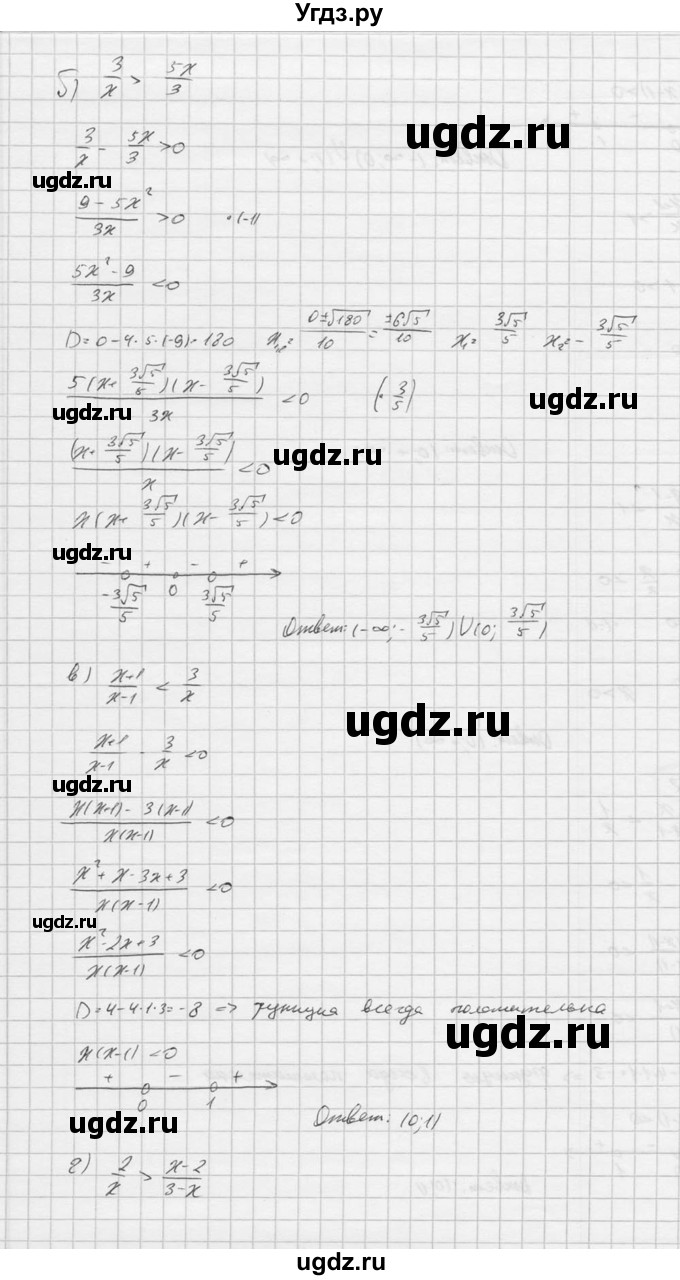 Угдз.ру
б) 3/x > 5x/3
ugdz.ru
3/x - 5x/3 > 0
ugdz.ru
(9 - 5x²)/(3x) > 0 ·(-1)
(5x² - 9)/(3x) < 0
D = 0 - 4·5·(-9) = 180 x₁,₂ = (0±√180)/10 = (±6√5)/10 x₁ = 3√5/5 x₂ = - 3√5/5
5(x + 3√5/5)(x - 3√5/5)/(3x) < 0 (· 3/5)
ugdz.ru ugdz.ru
(x + 3√5/5)(x - 3√5/5)/x < 0
ugdz.ru
x(x + 3√5/5)(x - 3√5/5) < 0
ugdz.ru
- + - +
-3√5/5 0 3√5/5
Ответ: (-∞; - 3√5/5) ∪ (0; 3√5/5)
в) (x+1)/(x-1) < 3/x
ugdz.ru
(x+1)/(x-1) - 3/x < 0
ugdz.ru
(x(x+1) - 3(x-1))/(x(x-1)) < 0
(x² + x - 3x + 3)/(x(x-1)) < 0
ugdz.ru
(x² - 2x + 3)/(x(x-1)) < 0
D = 4 - 4·1·3 = -8 => функция всегда положительна
x(x-1) < 0
+ - +
0 1
ugdz.ru
Ответ: (0;1)
г) 2/x > (x-2)/(3-x)
ugdz.ru
ugdz.ru